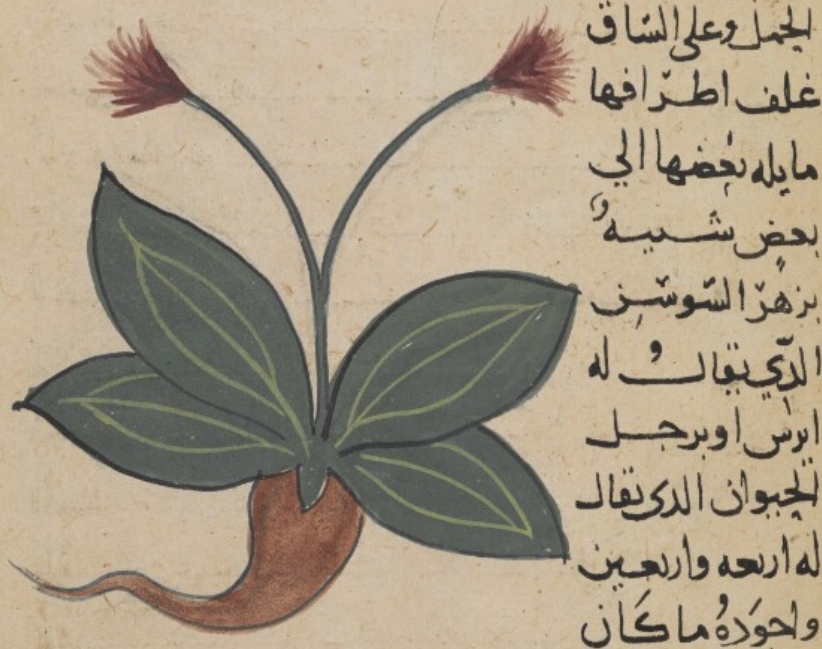 الجمل وعلى الساق
غلف اطرافها
مايله بعضها الي
بعض شبيه
بزهر السوسن
الذي يقال له
ايرس او برجل
الحيوان الذي يقال
له اربعه واربعين
واجوده ما كان